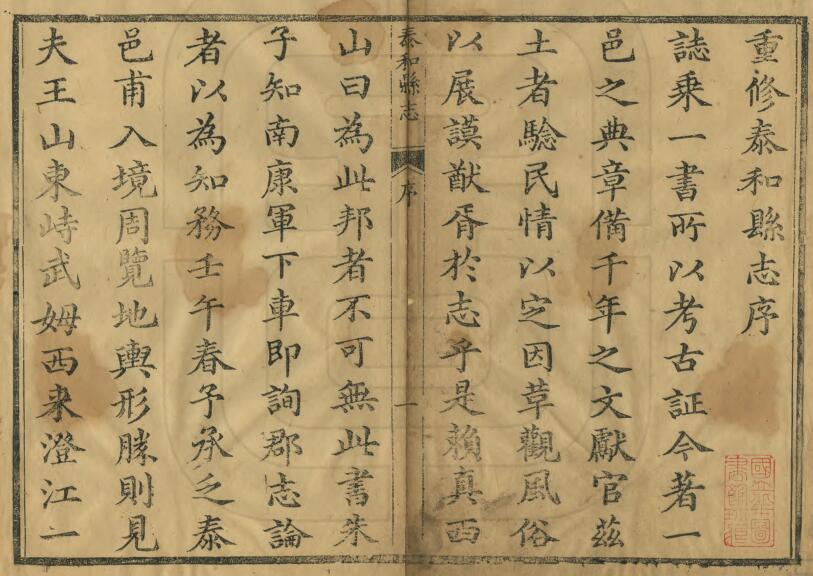 重修泰和縣志序
誌乗一書所以考古証今著一
邑之典章備千年之文獻官兹
土者驗民情以定因革觀風俗
以展謨猷胥於志乎是賴真西
泰和縣志 序 一
山曰為此邦者不可無此書朱
子知南康軍下車即詢郡志論
者以為知務壬午春予承乏泰
邑甫入境周覽地輿形勝則見
夫王山東峙武姆西来澄江一